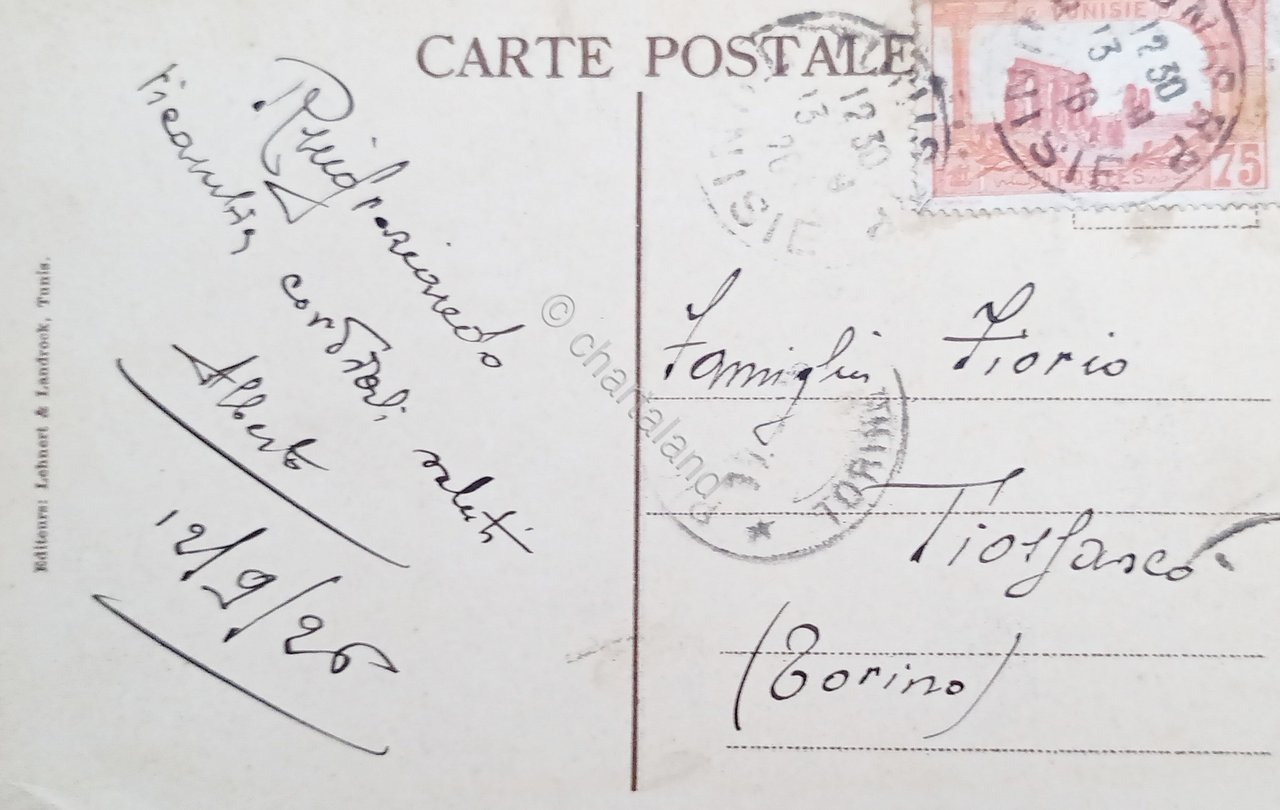 CARTE POSTALE
Editeurs: Lehnert & Landrock, Tunis.
ricambia cordiali saluti
Alberto
12/9/26
TUNISIE
POSTES
75
12 30
13
TUNISIE
12 30
13
NISIE
Famiglia Fiorio
TORINO
(Torino)
© chartaland